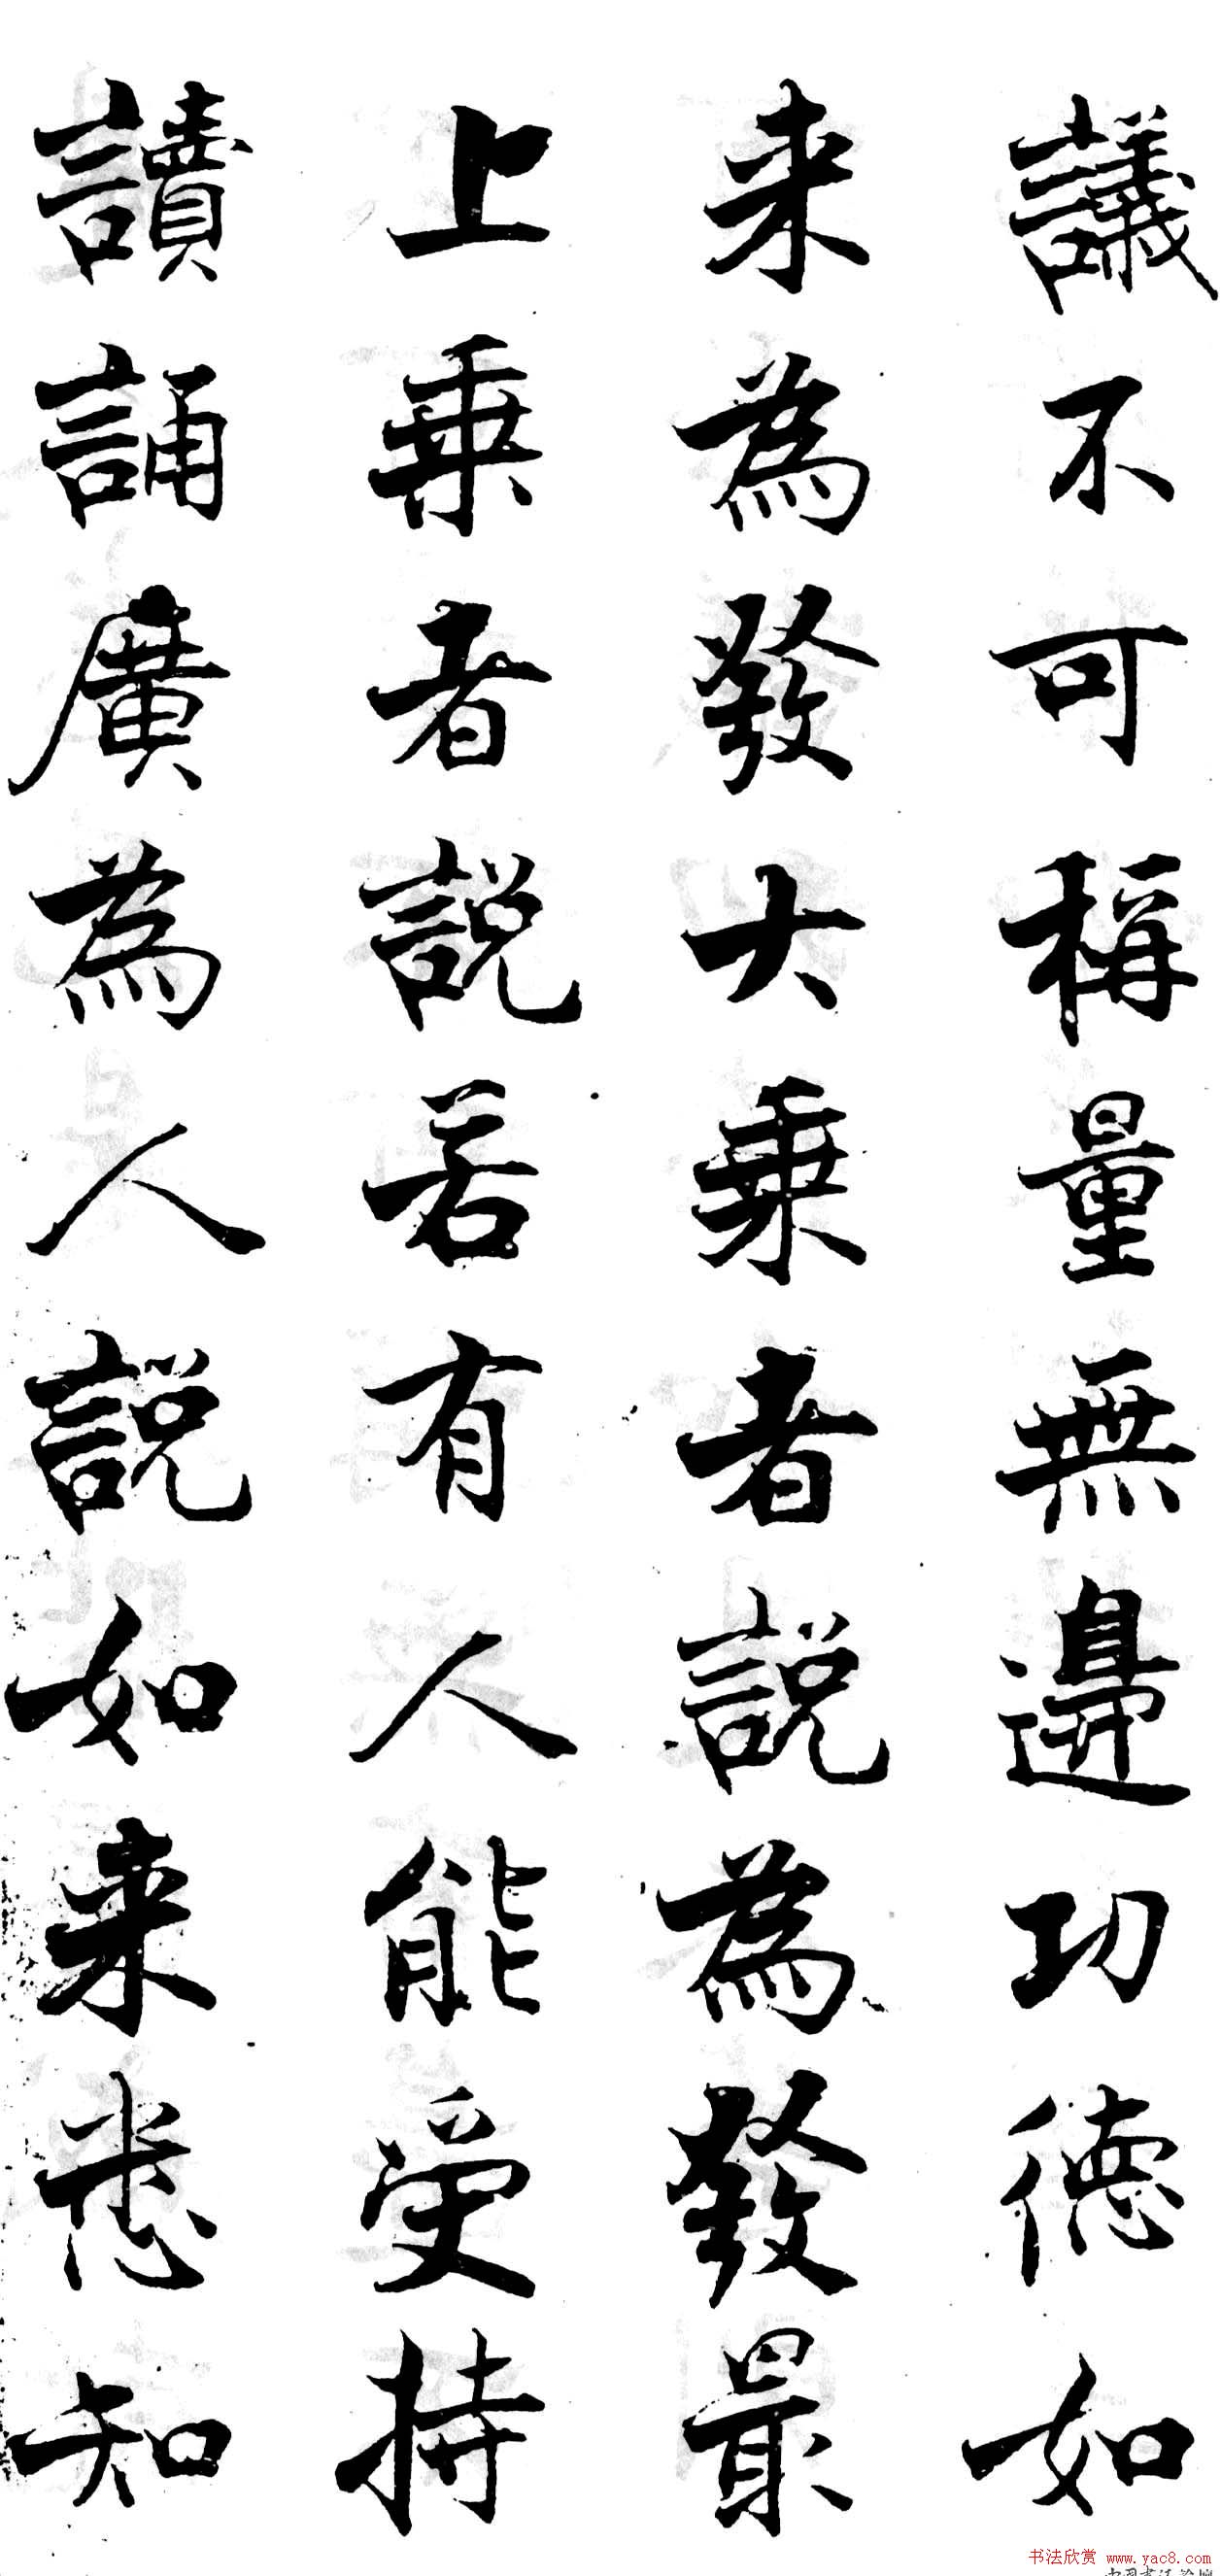 議不可稱量無邊功德如
来為發大乗者説為發最
上乗者説若有人能受持
讀誦廣為人説如来悉知
书法欣赏 www.yac8.com